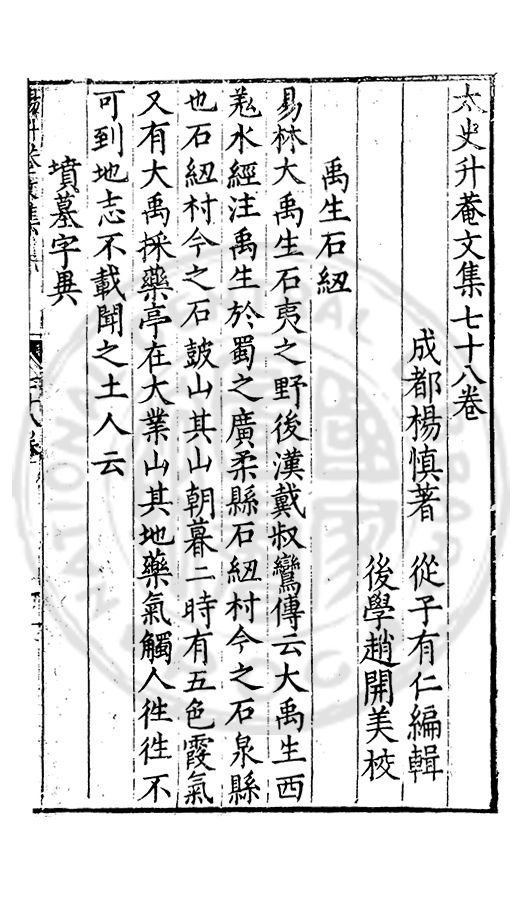 太史升菴文集七十八卷
成都楊慎著 從子有仁編輯
後學趙開美校
禹生石紐
易林大禹生石夷之野後漢戴叔鸞傳云大禹生西
羗水經注禹生於蜀之廣柔縣石紐村今之石泉縣
也石紐村今之石皷山其山朝暮二時有五色霞氣
又有大禹採藥亭在大業山其地藥氣觸人徃徃不
可到地志不載聞之土人云
墳墓字異